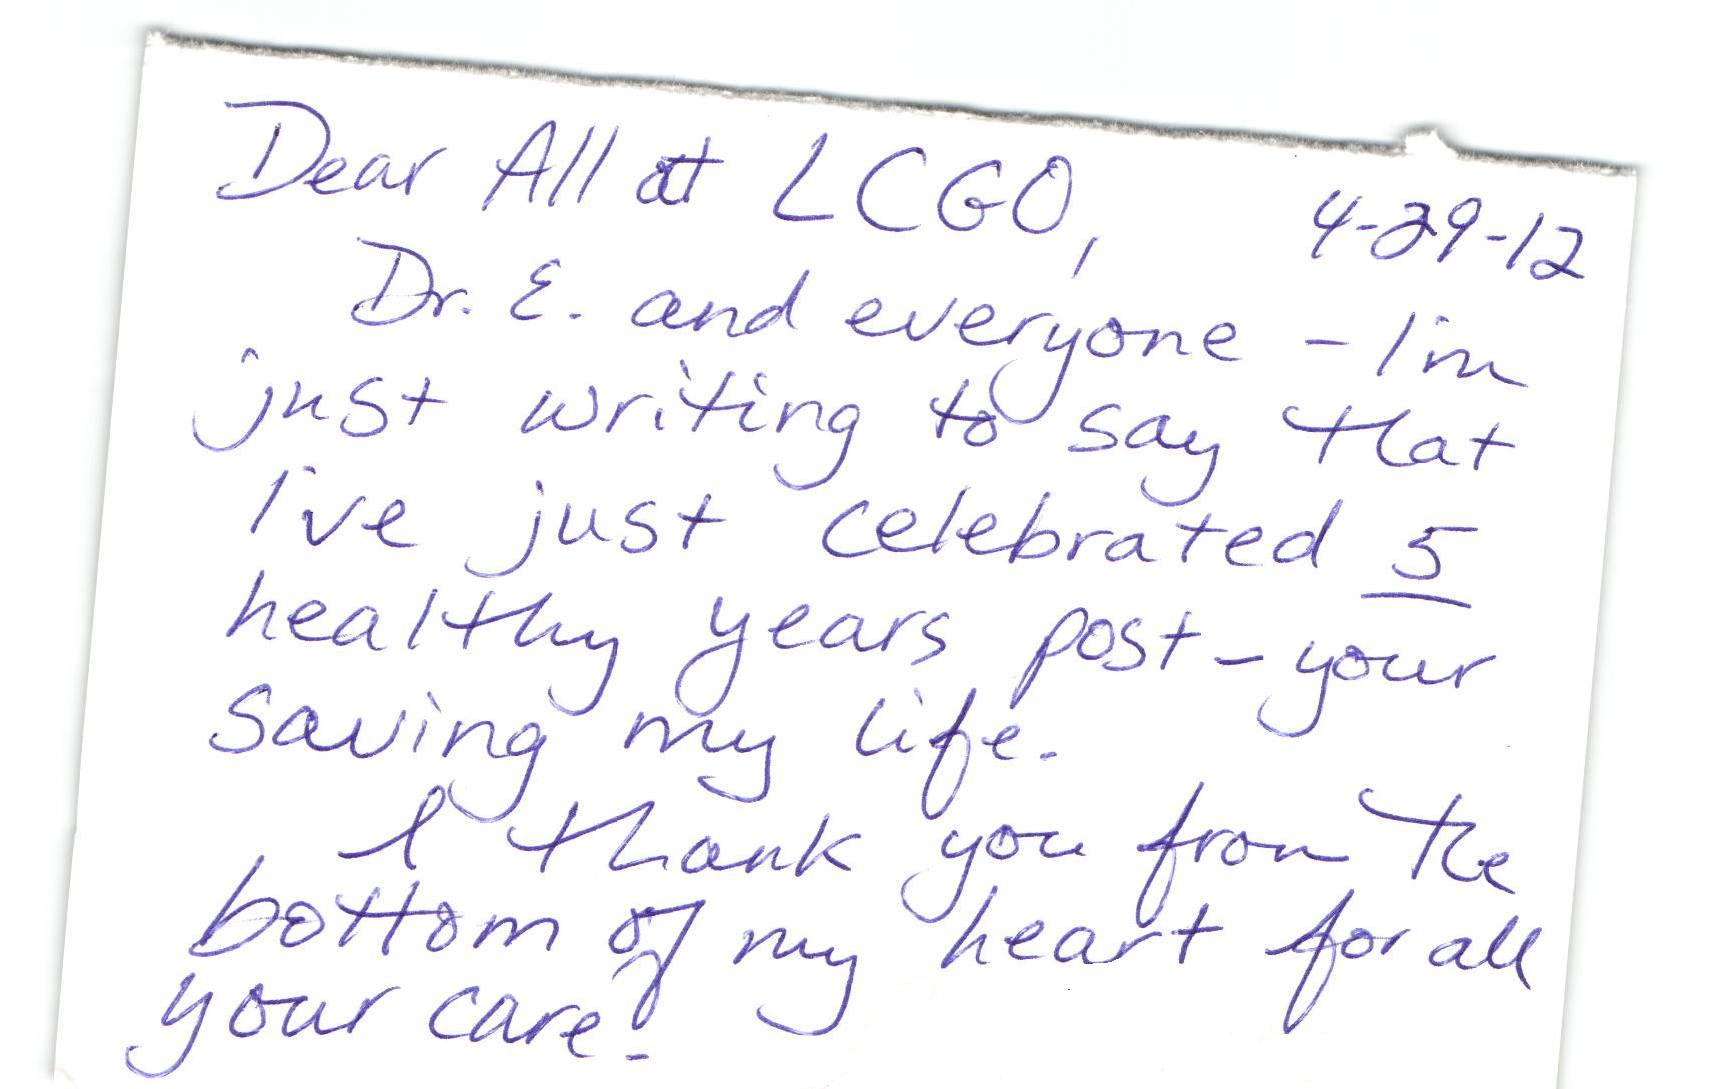 Dear All at LCGO,
4-29-12
Dr. E. and everyone - I'm
just writing to say that
I've just celebrated 5
healthy years post - your
saving my life.
I thank you from the
bottom of my heart for all
your care!